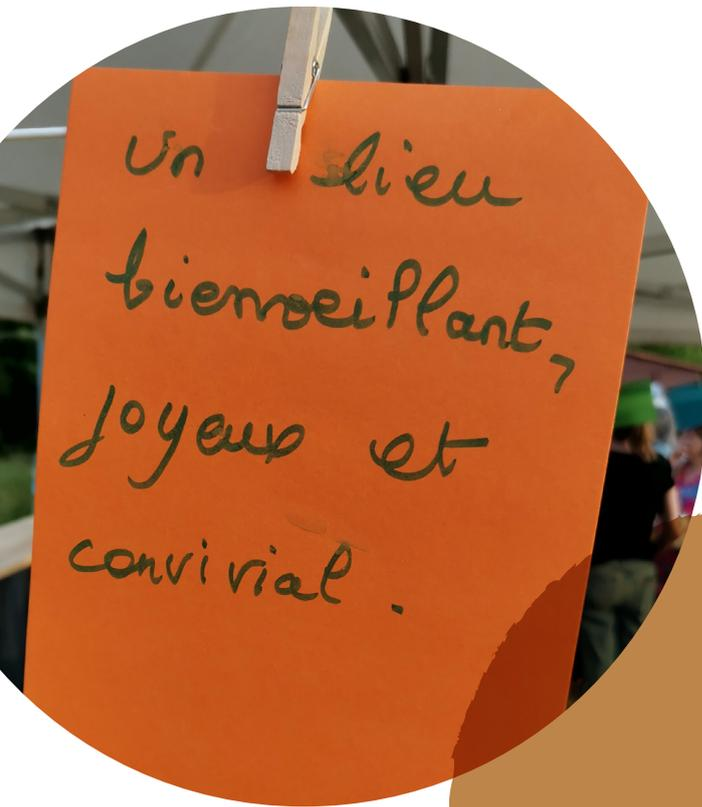 Un lieu
bienveillant,
joyeux et
convivial.